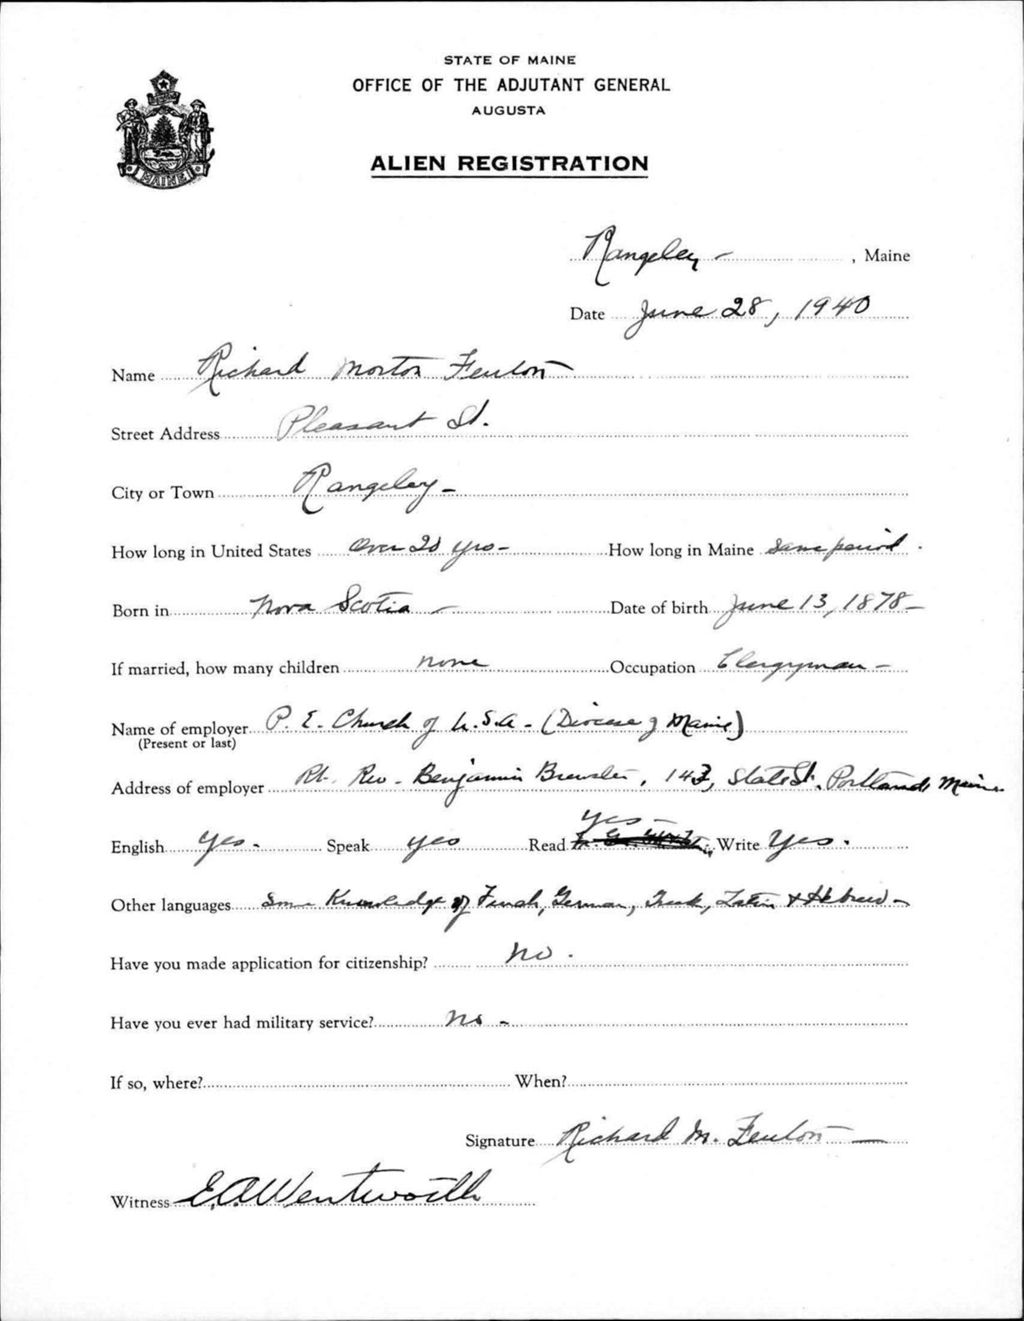 STATE OF MAINE
OFFICE OF THE ADJUTANT GENERAL
AUGUSTA
ALIEN REGISTRATION
MAINE
Rangeley - , Maine
Date June 28, 1940
Name Richard Morton Fenton
Street Address Pleasant St.
City or Town Rangeley -
How long in United States Over 20 yrs - How long in Maine Same period.
Born in Nova Scotia - Date of birth June 13, 1878 -
If married, how many children none Occupation Clergyman -
Name of employer P. E. Church of U.S.A. - (Diocese of Maine)
(Present or last)
Address of employer Rt. Rev. Benjamin Brewster, 143, State St. Portland, Maine
yes -
English yes - Speak yes Read Write Yes.
Other languages Some Knowledge of French, German, Greek, Latin & Hebrew -
Have you made application for citizenship? no.
Have you ever had military service? no -
If so, where? When?
Signature Richard M. Fenton -
Witness E.A. Wentworth